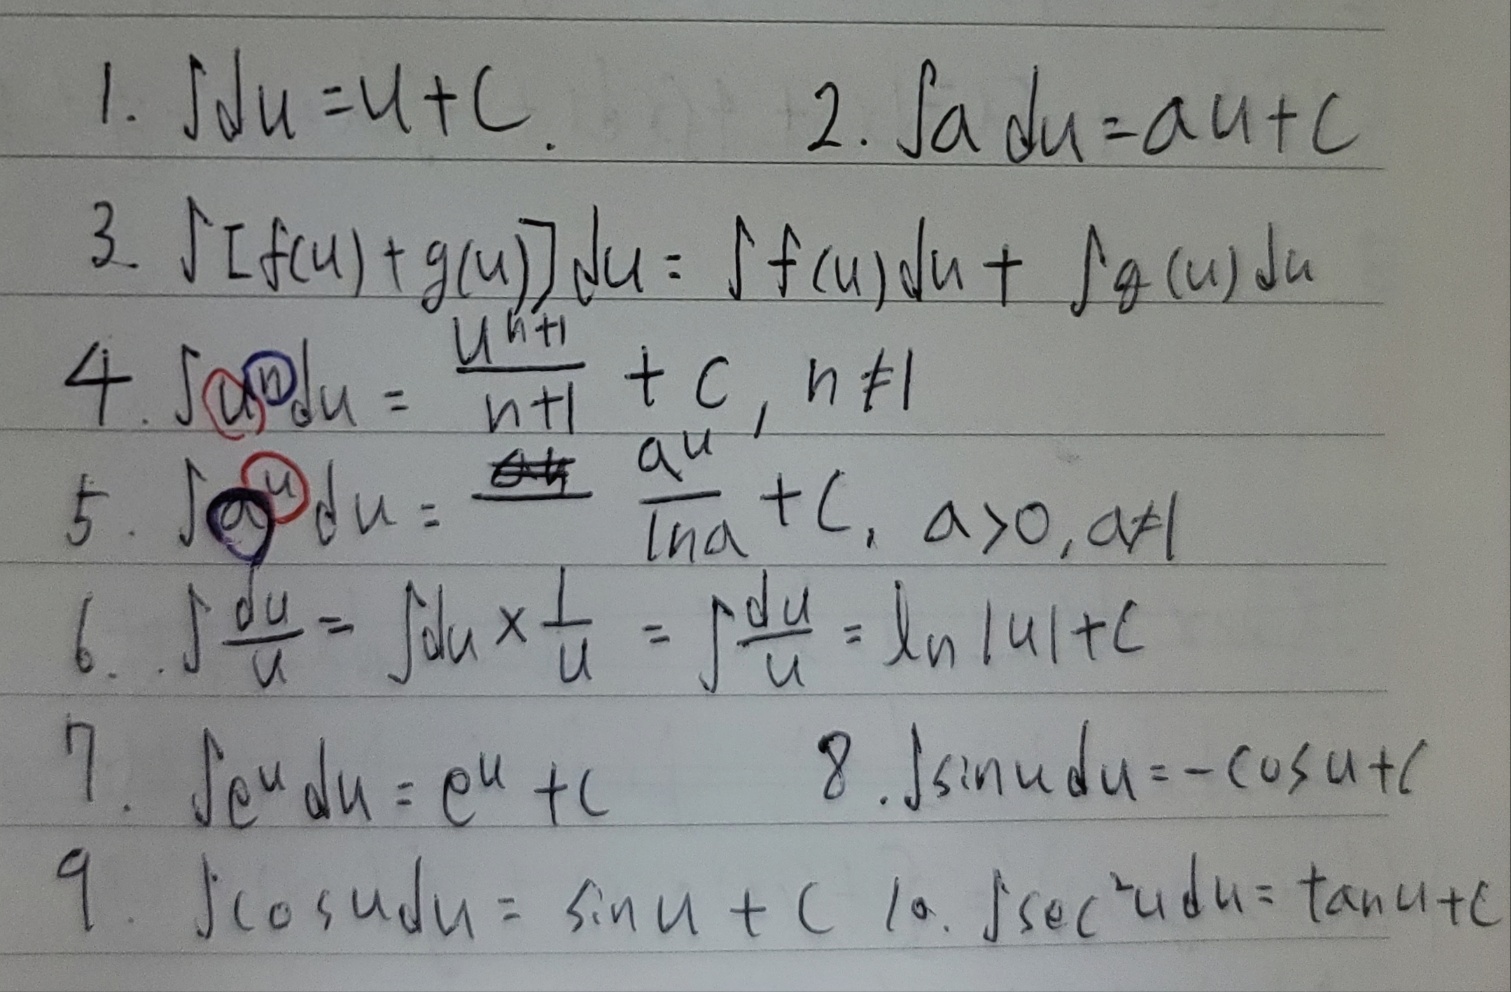 1. ∫du = u + C.   2. ∫a du = au + C
3. ∫[f(u) + g(u)] du = ∫f(u) du + ∫g(u) du
4. ∫uⁿ du = uⁿ⁺¹/(n+1) + C, n ≠ 1
5. ∫aᵘ du = aᵘ/ln a + C, a > 0, a ≠ 1
6. ∫du/u = ∫du × 1/u = ∫du/u = ln |u| + C
7. ∫eᵘ du = eᵘ + C   8. ∫sin u du = -cos u + C
9. ∫cos u du = sin u + C   10. ∫sec²u du = tan u + C